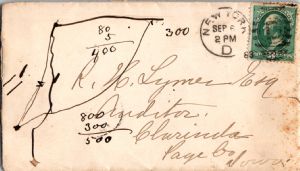 80
5
400
300
NEW YORK
SEP
2 PM
D
R. H. Lymer Esq
Auditor
Clarinda
Page Co
Iowa
800
300
500